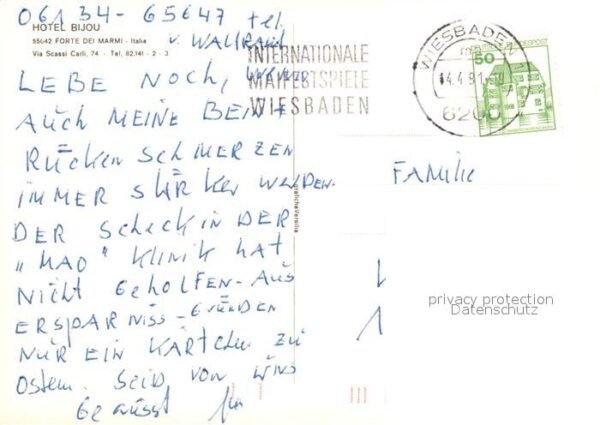 06134-65647 tel.
v. WALLRAF
HOTEL BIJOU
55042 FORTE DEI MARMI - Italia
Via Scassi Carli, 74 - Tel. 82.141 - 2 - 3
INTERNATIONALE
MAIFESTSPIELE
WIESBADEN
WIESBADEN
-4.4.81
6200
50
DEUTSCHE BUNDESPOST
LEBE NOCH, WENN
AUCH MEINE BEIN+
RÜCKENSCHMERZEN
IMMER STÄRKER WERDEN.
DER SCHECK IN DER
"MAO" KLINIK HAT
NICHT GEHOLFEN - AUS
ERSPARNISS - GRÜNDEN
NUR EIN KÄRTCHEN ZU
OSTERN. SEID VON UNS
GEGRÜSST
FAMILIE
privacy protection
Datenschutz